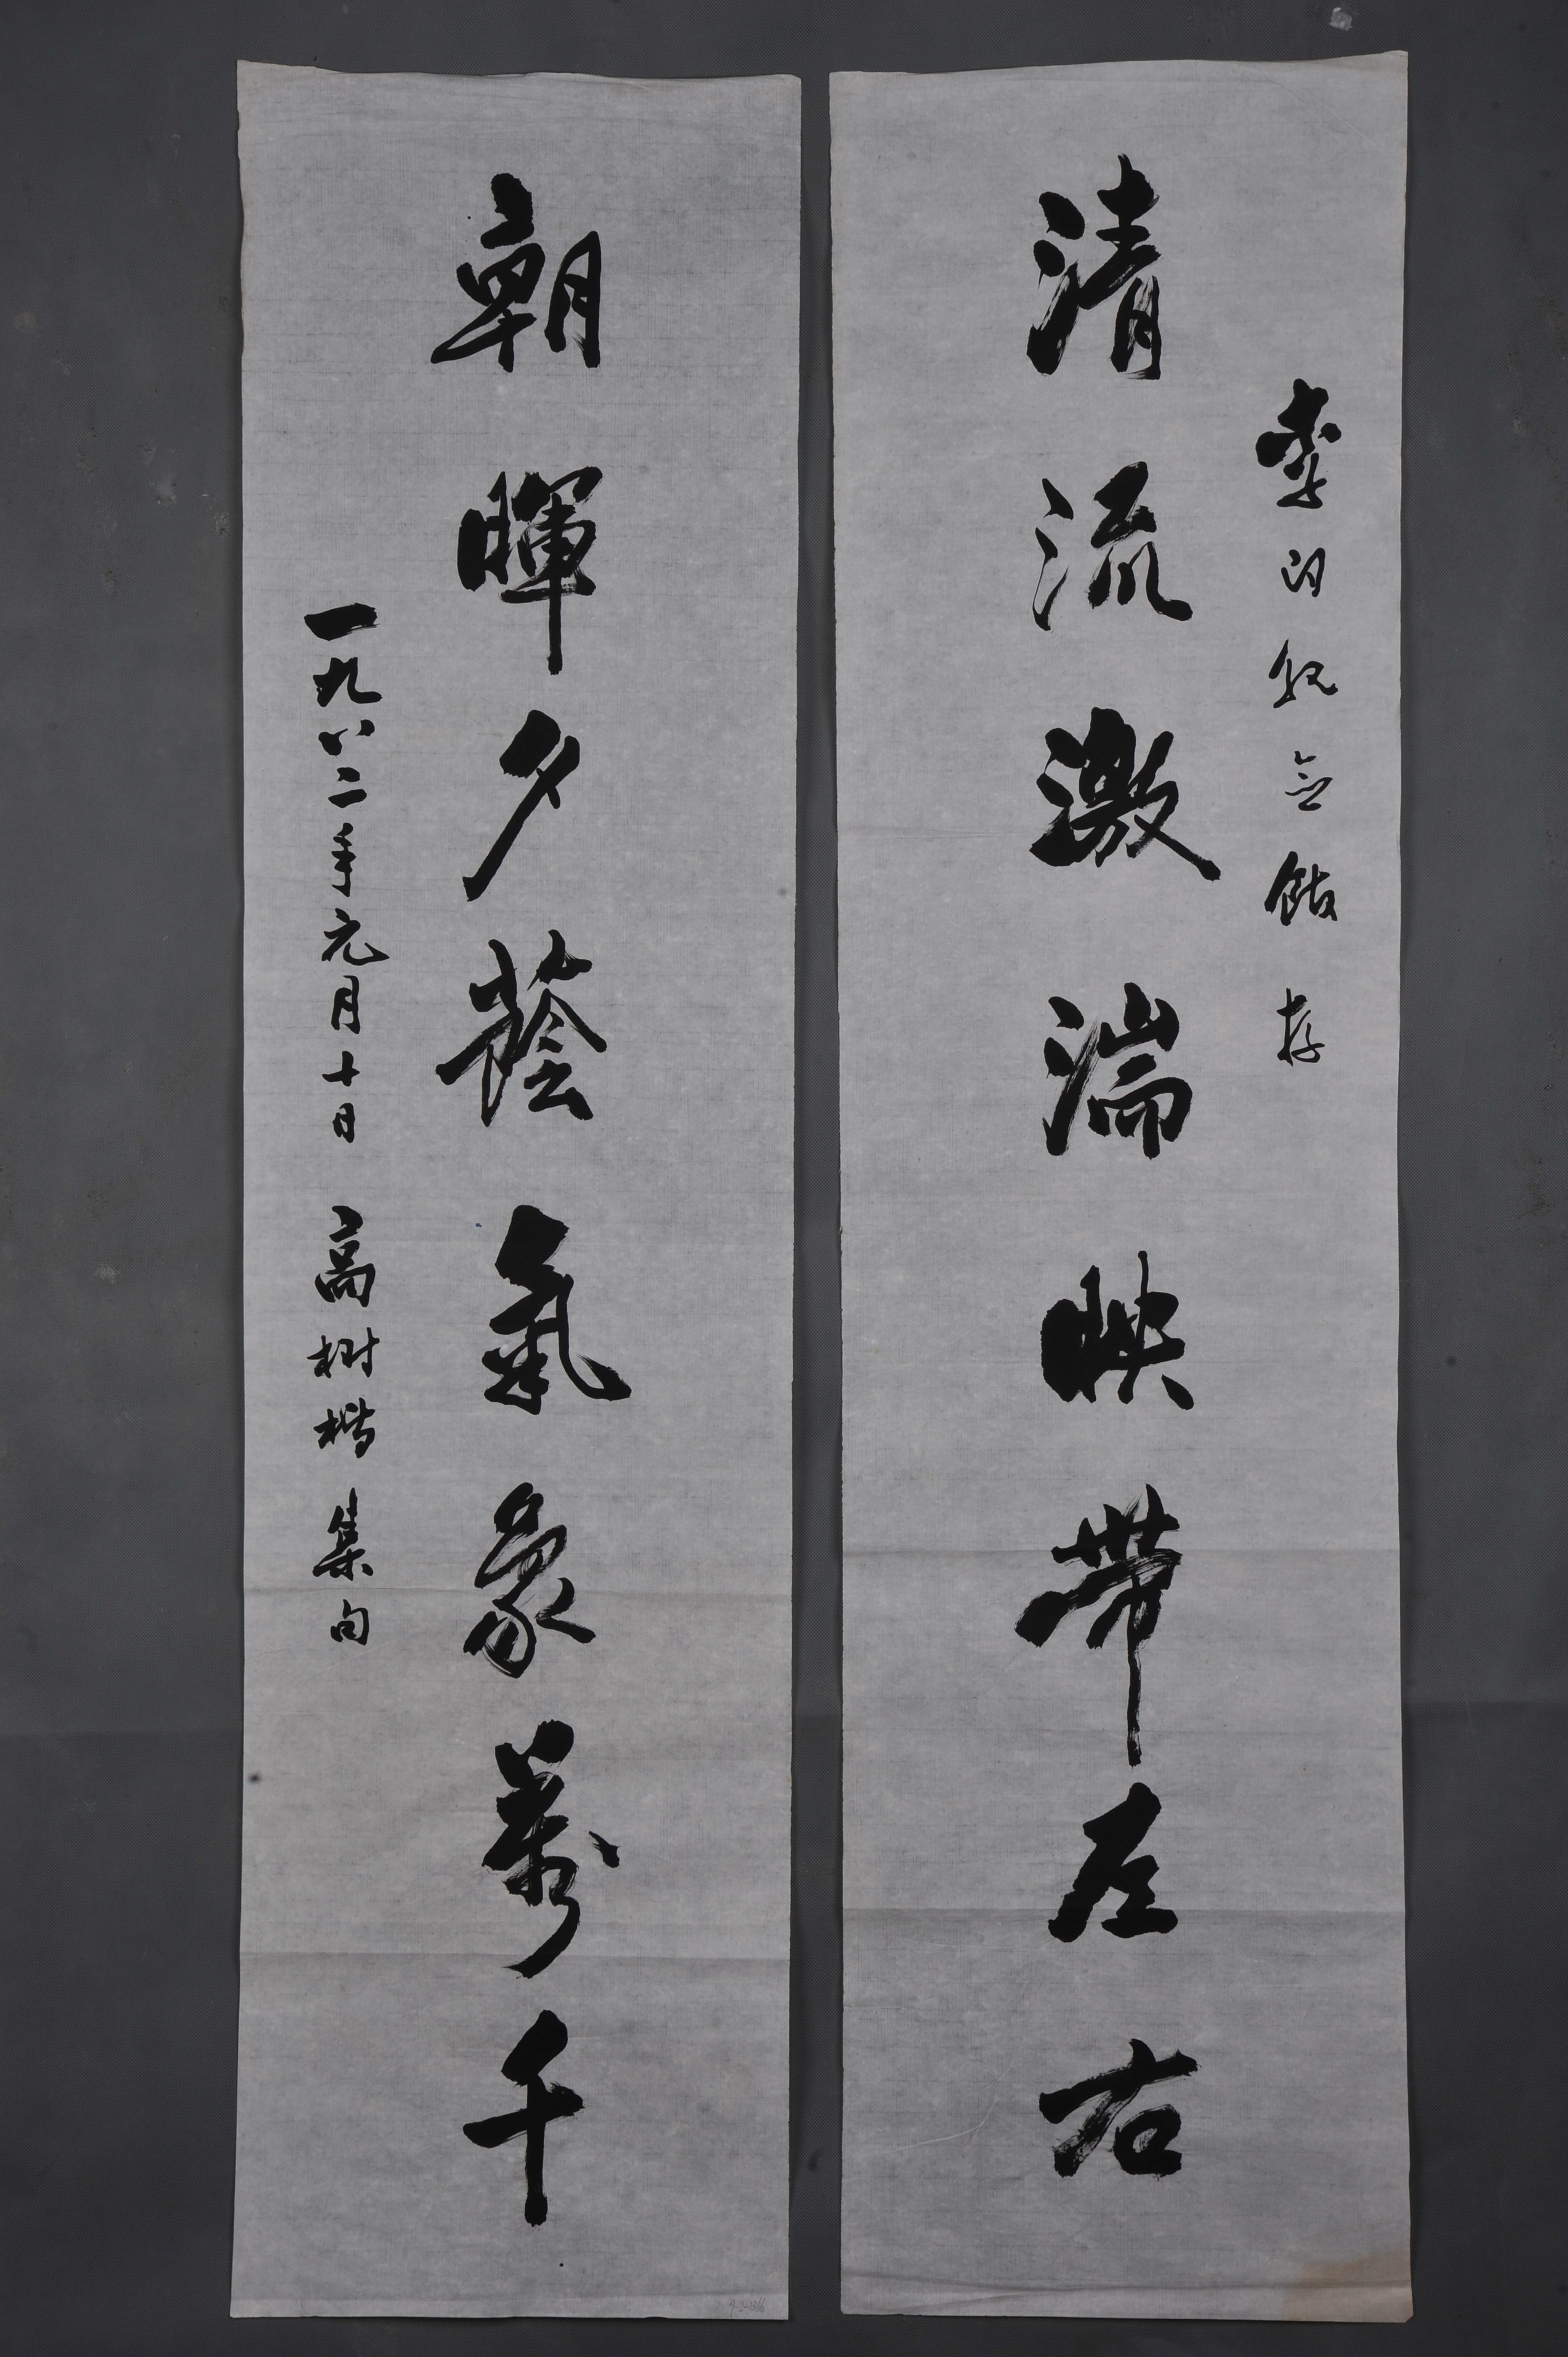 李白紀念館存
清流激湍映帶左右
朝暉夕蔭氣象萬千
一九八二年元月十日 高树楷 集句